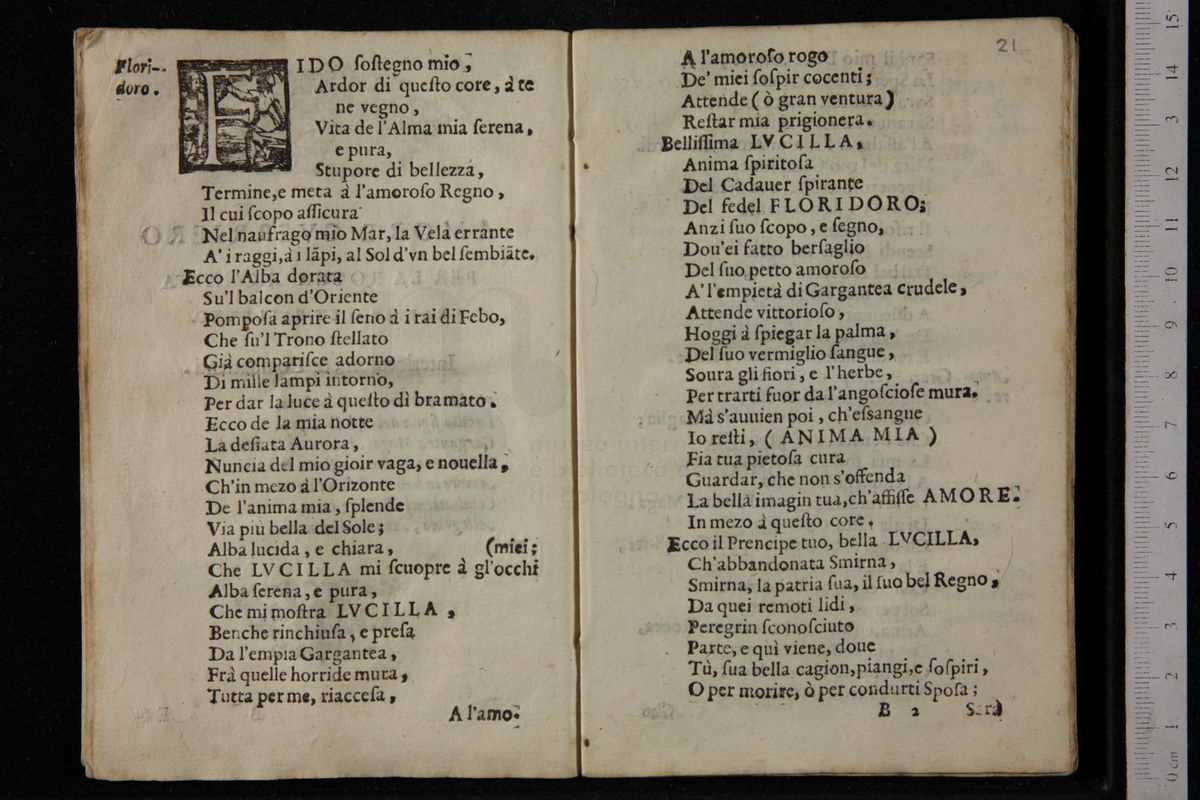 Flori-
doro.
FIDO ſoſtegno mio;
Ardor di queſto core, à te
ne vegno,
Vita de l'Alma mia ſerena,
e pura,
Stupore di bellezza,
Termine,e meta à l'amoroſo Regno,
Il cui ſcopo aſſicura
Nel naufrago mio Mar, la Vela errante
A' i raggi,à i lãpi, al Sol d'vn bel ſembiãte.
Ecco l'Alba dorata
Su'l balcon d'Oriente
Pompoſa aprire il ſeno à i rai di Febo,
Che ſu'l Trono ſtellato
Già compariſce adorno
Di mille lampi intorno,
Per dar la luce à queſto dì bramato.
Ecco de la mia notte
La deſiata Aurora,
Nuncia del mio gioir vaga, e nouella,
Ch'in mezo à l'Orizonte
De l'anima mia, ſplende
Via più bella del Sole;
Alba lucida, e chiara, (miei;
Che LVCILLA mi ſcuopre à gl'occhi
Alba ſerena, e pura,
Che mi moſtra LVCILLA,
Benche rinchiuſa, e preſa
Da l'empia Gargantea,
Frà quelle horride mura,
Tutta per me, riacceſa,
A l'amo-
21
A l'amoroſo rogo
De' miei ſoſpir cocenti;
Attende (ò gran ventura)
Reſtar mia prigionera.
Belliſſima LVCILLA,
Anima ſpiritoſa
Del Cadauer ſpirante
Del fedel FLORIDORO;
Anzi ſuo ſcopo, e ſegno,
Dou'ei fatto berſaglio
Del ſuo petto amoroſo
A' l'empietà di Gargantea crudele,
Attende vittorioſo,
Hoggi à ſpiegar la palma,
Del ſuo vermiglio ſangue,
Soura gli fiori, e l'herbe,
Per trarti fuor da l'angoſcioſe mura.
Mà s'auuien poi, ch'eſsangue
Io reſti, (ANIMA MIA)
Fia tua pietoſa cura
Guardar, che non s'offenda
La bella imagin tua,ch'affiſſe AMORE.
In mezo à queſto core.
Ecco il Prencipe tuo, bella LVCILLA,
Ch'abbandonata Smirna,
Smirna, la patria ſua, il ſuo bel Regno,
Da quei remoti lidi,
Peregrin ſconoſciuto
Parte, e quì viene, doue
Tù, ſua bella cagion,piangi,e ſoſpiri,
O per morire, ò per condurti Spoſa;
B 2 Sarà